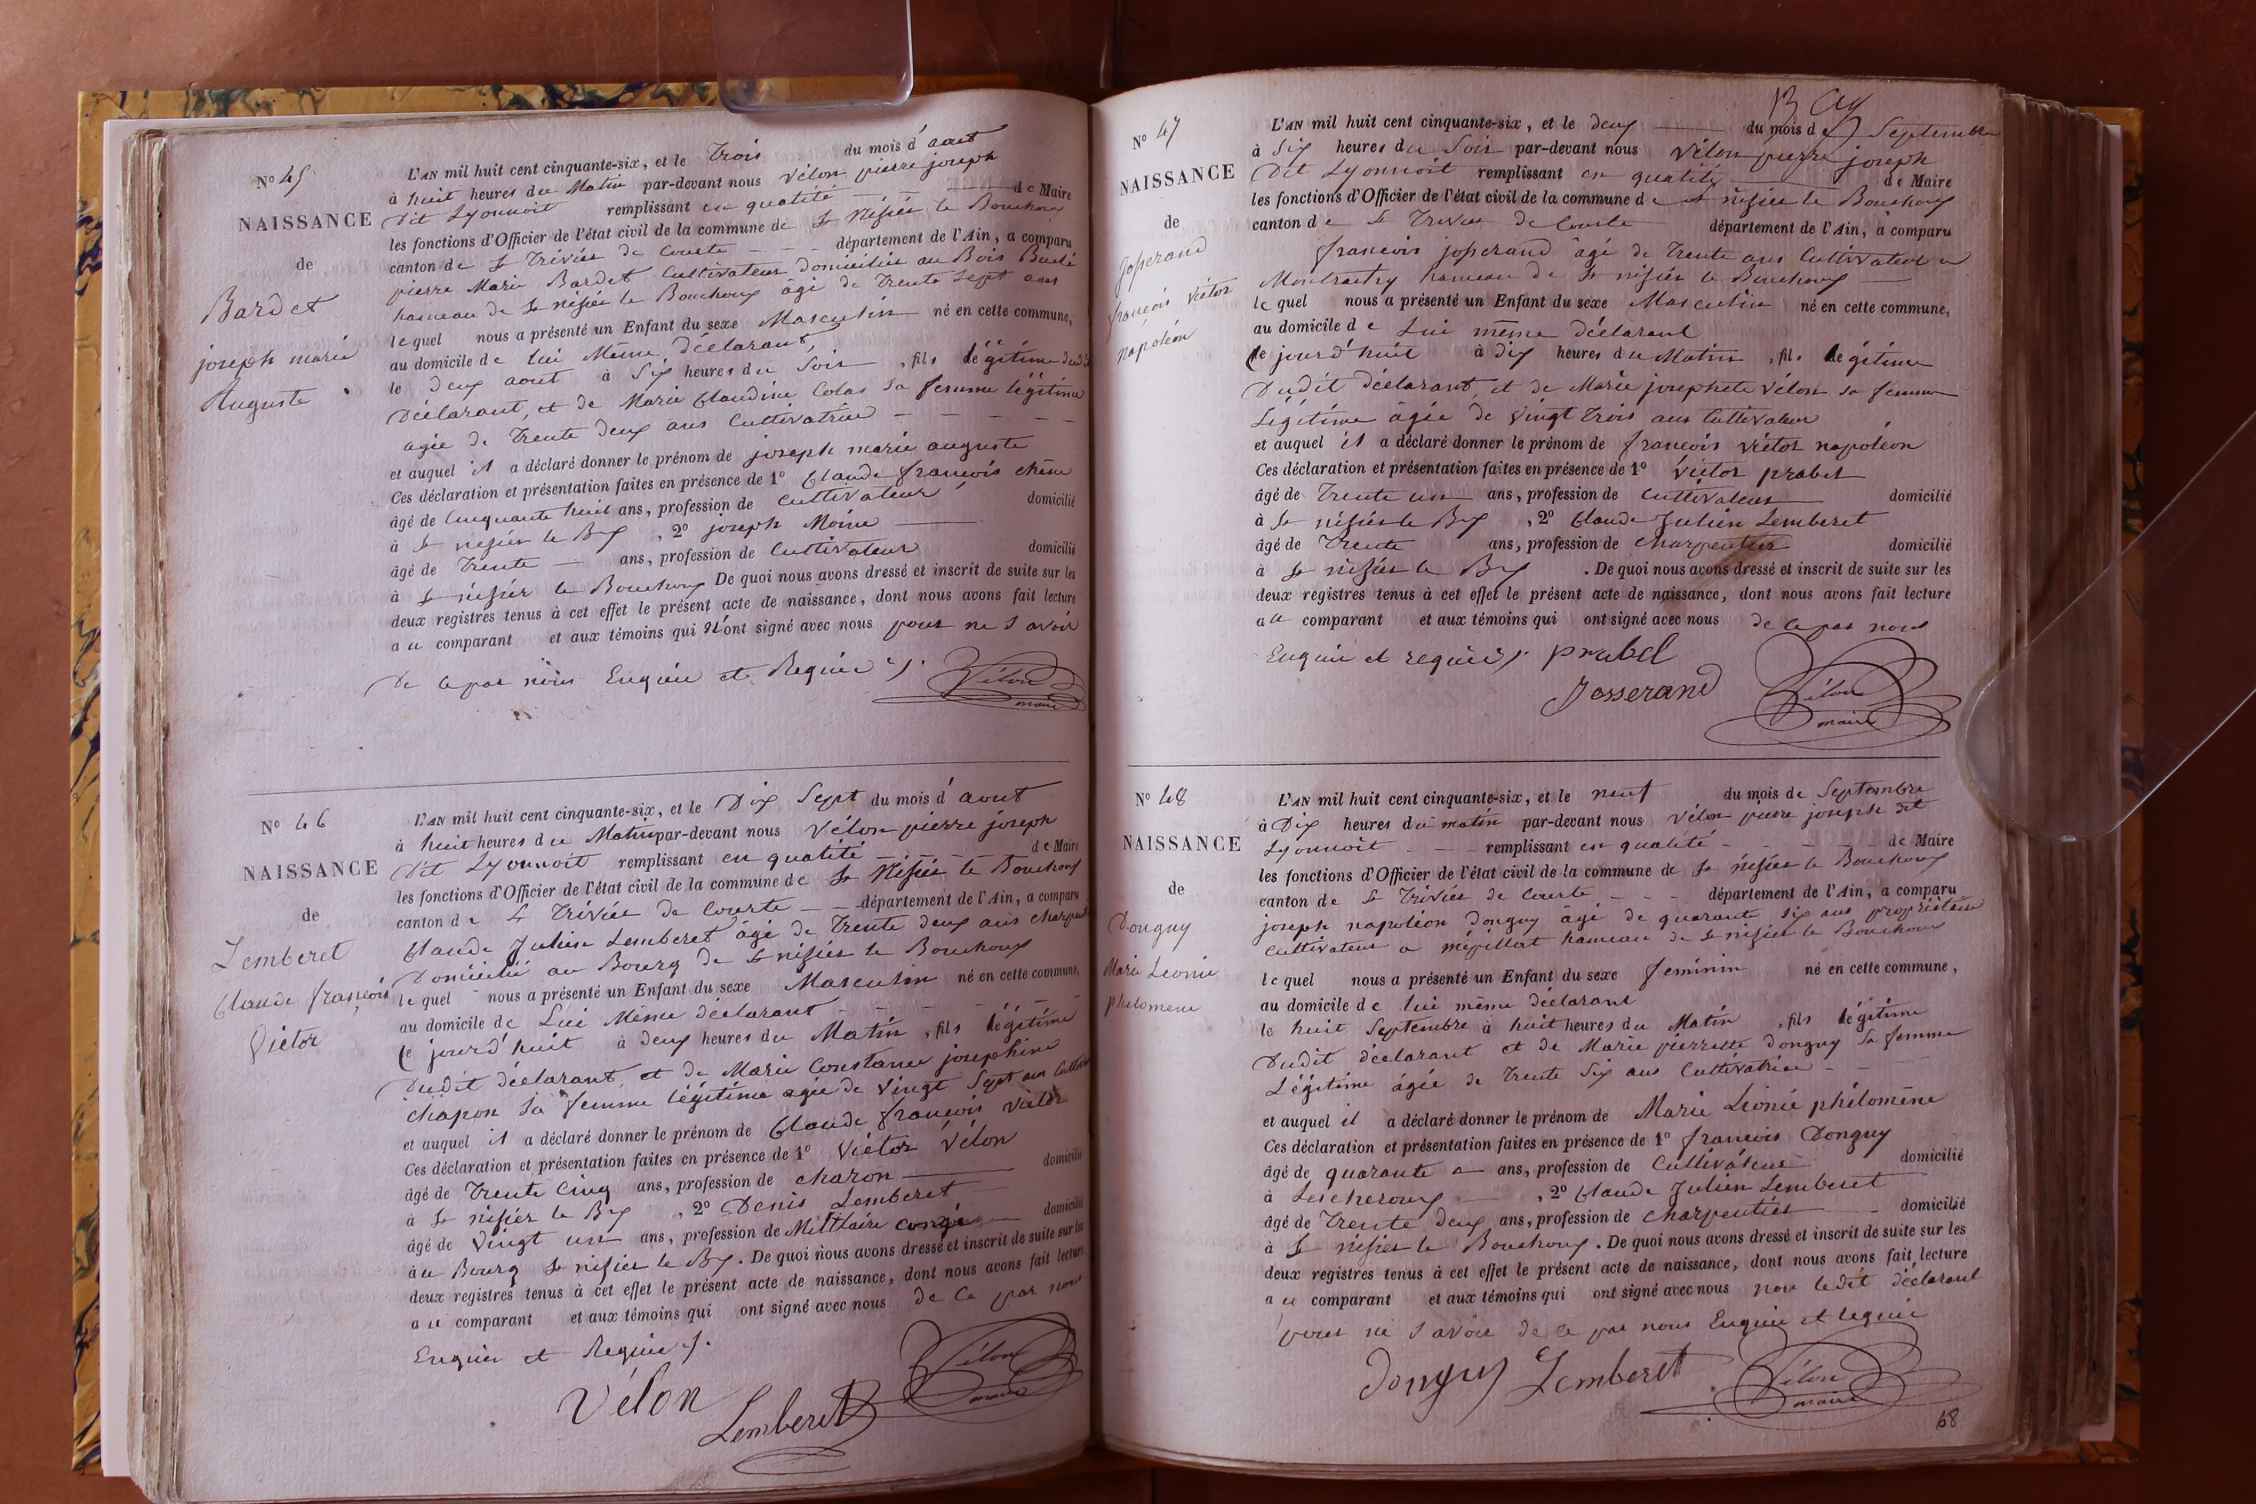 N° 45
NAISSANCE
de
Bardet
joseph marie
Auguste
L'AN mil huit cent cinquante-six, et le Trois du mois d'aout
à huit heures du Matin par-devant nous Vélon pierre joseph
Dit Lyonnoit remplissant en qualité de Maire
les fonctions d'Officier de l'état civil de la commune de St Nisier le Bouchoux
canton de St Trivier de Courte département de l'Ain, a comparu
pierre Marie Bardet Cultivateur domicilié au Bois
hameau de St nisier le Bouchoux agé de Trente Sept ans
lequel nous a présenté un Enfant du sexe Masculin né en cette commune,
au domicile de lui Même Déclarant,
le deux aout à Six heures du Soir, fils légitime dudit
Déclarant, et de Marie Claudine Colas Sa femme légitime
agée de Trente deux ans Cultivatrice
et auquel il a déclaré donner le prénom de joseph marie auguste
Ces déclaration et présentation faites en présence de 1° Claude françois chêne
âgé de Cinquante huit ans, profession de Cultivateur domicilié
à St nisier le Bx, 2° joseph Moine
âgé de Trente ans, profession de Cultivateur domicilié
à St nisier le Bouchoux De quoi nous avons dressé et inscrit de suite sur les
deux registres tenus à cet effet le présent acte de naissance, dont nous avons fait lecture
au comparant et aux témoins qui n'ont signé avec nous pour ne Savoir
De ce par nous Enquis et Requis /.
Vélon
maire
N° 46
NAISSANCE
de
Lemberet
Claude françois
Victor
L'AN mil huit cent cinquante-six, et le Dix Sept du mois d'aout
à huit heures du Matin par-devant nous Vélon pierre joseph
Dit Lyonnoit remplissant en qualité de Maire
les fonctions d'Officier de l'état civil de la commune de St Nisier le Bouchoux
canton de St Trivier de Courte département de l'Ain, a comparu
Claude Julien Lemberet âgé de Trente deux ans
Domicilié au Bourg de St nisier le Bouchoux
lequel nous a présenté un Enfant du sexe Masculin né en cette commune,
au domicile de Lui Même déclarant
Ce jourd'huit à deux heures du Matin, fils légitime
Dudit déclarant, et de Marie Constance josephine
chapon Sa femme légitime agée de Vingt Sept ans
et auquel il a déclaré donner le prénom de Claude françois Victor
Ces déclaration et présentation faites en présence de 1° Victor Vélon
âgé de Trente Cinq ans, profession de charon domicilié
à St nisier le Bx, 2° Denis Lemberet
âgé de Vingt un ans, profession de Militaire congé domicilié
au Bourg St nisier le Bx. De quoi nous avons dressé et inscrit de suite sur les
deux registres tenus à cet effet le présent acte de naissance, dont nous avons fait lecture
au comparant et aux témoins qui ont signé avec nous de Ce par nous
Enquis et Requis /.
Vélon
Lemberet
Vélon
maire
N° 47
NAISSANCE
de
Josserand
françois Victor
napoléon
L'AN mil huit cent cinquante-six, et le deux du mois de Septembre
à Six heures du Soir par-devant nous Vélon pierre joseph
Dit Lyonnoit remplissant en qualité de Maire
les fonctions d'Officier de l'état civil de la commune de St nisier le Bouchoux
canton de St Trivier de Courte département de l'Ain, a comparu
françois josserand âgé de Trente ans Cultivateur a
hameau de St nisier le Bouchoux
lequel nous a présenté un Enfant du sexe Masculin né en cette commune,
au domicile de Lui même déclarant
Ce jourd'huit à dix heures du Matin, fils légitime
Dudit déclarant, et de Marie josephete Vélon sa femme
Légitime âgée de Vingt Trois ans Cultivateur
et auquel il a déclaré donner le prénom de françois Victor napoléon
Ces déclaration et présentation faites en présence de 1° Victor prabel
âgé de Trente un ans, profession de Cultivateur domicilié
à St nisier le Bx, 2° Claude Julien Lemberet
âgé de Trente ans, profession de charpentier domicilié
à St nisier le Bx. De quoi nous avons dressé et inscrit de suite sur les
deux registres tenus à cet effet le présent acte de naissance, dont nous avons fait lecture
au comparant et aux témoins qui ont signé avec nous de Ce par nous
Enquis et requis /. prabel
Josserand
Vélon
maire
N° 48
NAISSANCE
de
Donguy
Marie Leonie
philomene
L'AN mil huit cent cinquante-six, et le neuf du mois de Septembre
à Dix heures du matin par-devant nous Vélon pierre joseph dit
Lyonnoit remplissant en qualité de Maire
les fonctions d'Officier de l'état civil de la commune de St nisier le Bouchoux
canton de St Trivier de Courte département de l'Ain, a comparu
joseph napoléon Donguy âgé de quarante Six ans propriétaire
Cultivateur a mépillat hameau de St nisier le Bouchoux
lequel nous a présenté un Enfant du sexe feminin né en cette commune,
au domicile de lui même déclarant
le huit Septembre à huit heures du Matin, fils légitime
Dudit déclarant et de Marie pierrette Donguy Sa femme
Légitime âgée de Trente Six ans Cultivatrice
et auquel il a déclaré donner le prénom de Marie Léonie philomène
Ces déclaration et présentation faites en présence de 1° françois Donguy
âgé de quarante ans, profession de Cultivateur domicilié
à Lescheroux, 2° Claude Julien Lemberet
âgé de Trente deux ans, profession de charpentier domicilié
à St nisier le Bouchoux. De quoi nous avons dressé et inscrit de suite sur les
deux registres tenus à cet effet le présent acte de naissance, dont nous avons fait lecture
au comparant et aux témoins qui ont signé avec nous non ledit déclarant
pour ne Savoir de ce par nous Enquis et requis
Donguy Lemberet
Vélon
maire
68